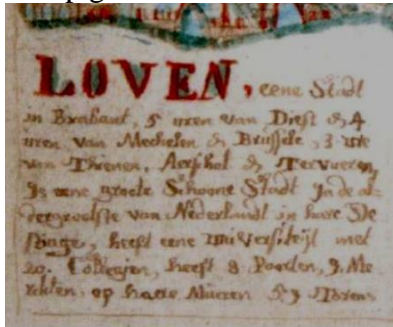 LOVEN, eene Stadt
in Brabant, 5 uren van Diest & 4
uren van Mechelen & Brussele, 3 ure
van Thienen, Aerschot & Tervueren,
Is eene groote Schoone Stadt Ja de al
dergrootste van Nederlandt in haere
heeft eene universiteijt met
20. Collegien, heeft 8 Poorten, 9. Me
rckten, op haere Mueren 53 Torens